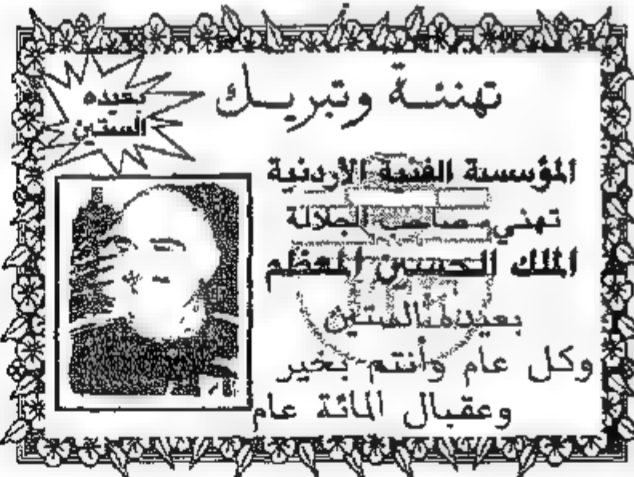 تهنئة وتبريك
بعيده
الستين
المؤسسة الفنية الأردنية
تهنيء صاحب الجلالة
الملك الحسين المعظم
بعيده الستين
وكل عام وأنتم بخير
وعقبال المائة عام